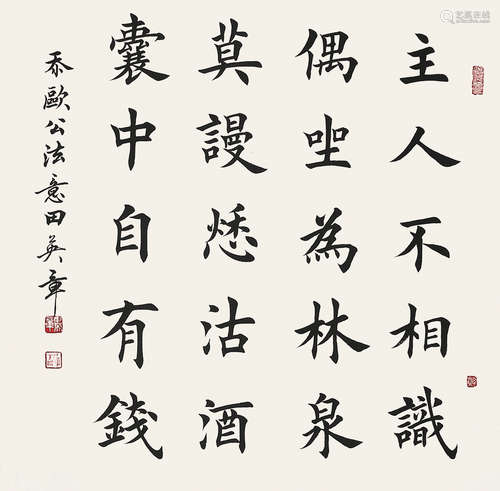 主人不相識
偶坐為林泉
莫謾愁沽酒
囊中自有錢
忝歐公法意田英章